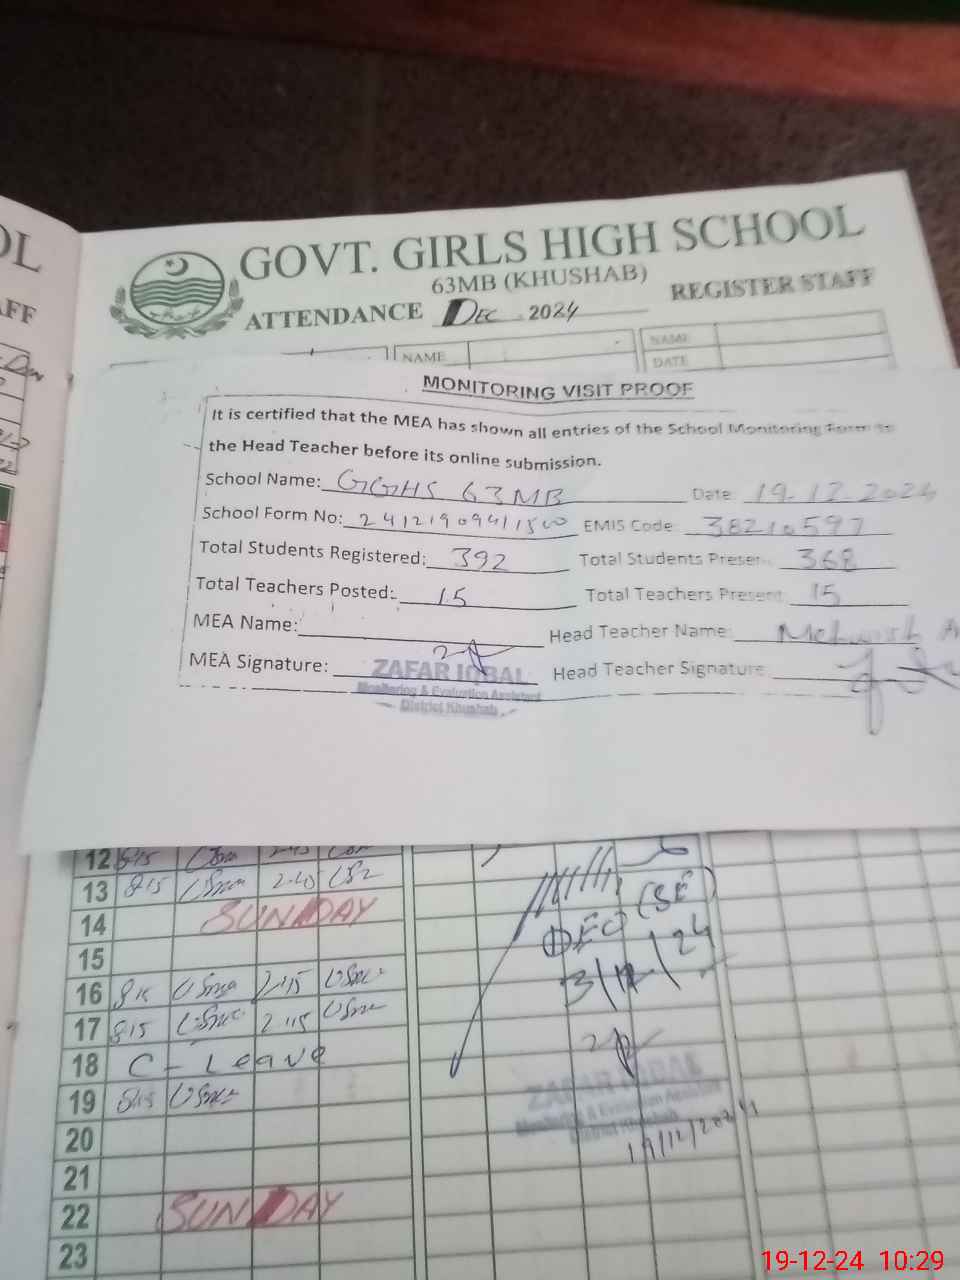 OL
GOVT. GIRLS HIGH SCHOOL
63MB (KHUSHAB)
AFF
ATTENDANCE DEC 2024 REGISTER STAFF
NAME NAME
DATE
MONITORING VISIT PROOF
It is certified that the MEA has shown all entries of the School Monitoring Form to
the Head Teacher before its online submission.
School Name: GGHS 63MB Date: 19-12-2024
School Form No: EMIS Code: 38210597
Total Students Registered: 392 Total Students Present: 368
Total Teachers Posted: 15 Total Teachers Present: 15
MEA Name: Head Teacher Name: Mehwish A
MEA Signature: Head Teacher Signature:
ZAFAR IQBAL
Monitoring & Evaluation Assistant
District Khushab
12 8:15 2:45
13 8:15 2:45
14 SUNDAY
15
16 8:15 2:15
17 8:15 2:15
18 C - Leave
19 8:15
20
21
22 SUNDAY
23
DEO (SE)
3/12/24
ZAFAR IQBAL
Monitoring & Evaluation Assistant
District Khushab
19/12/2024
19-12-24 10:29